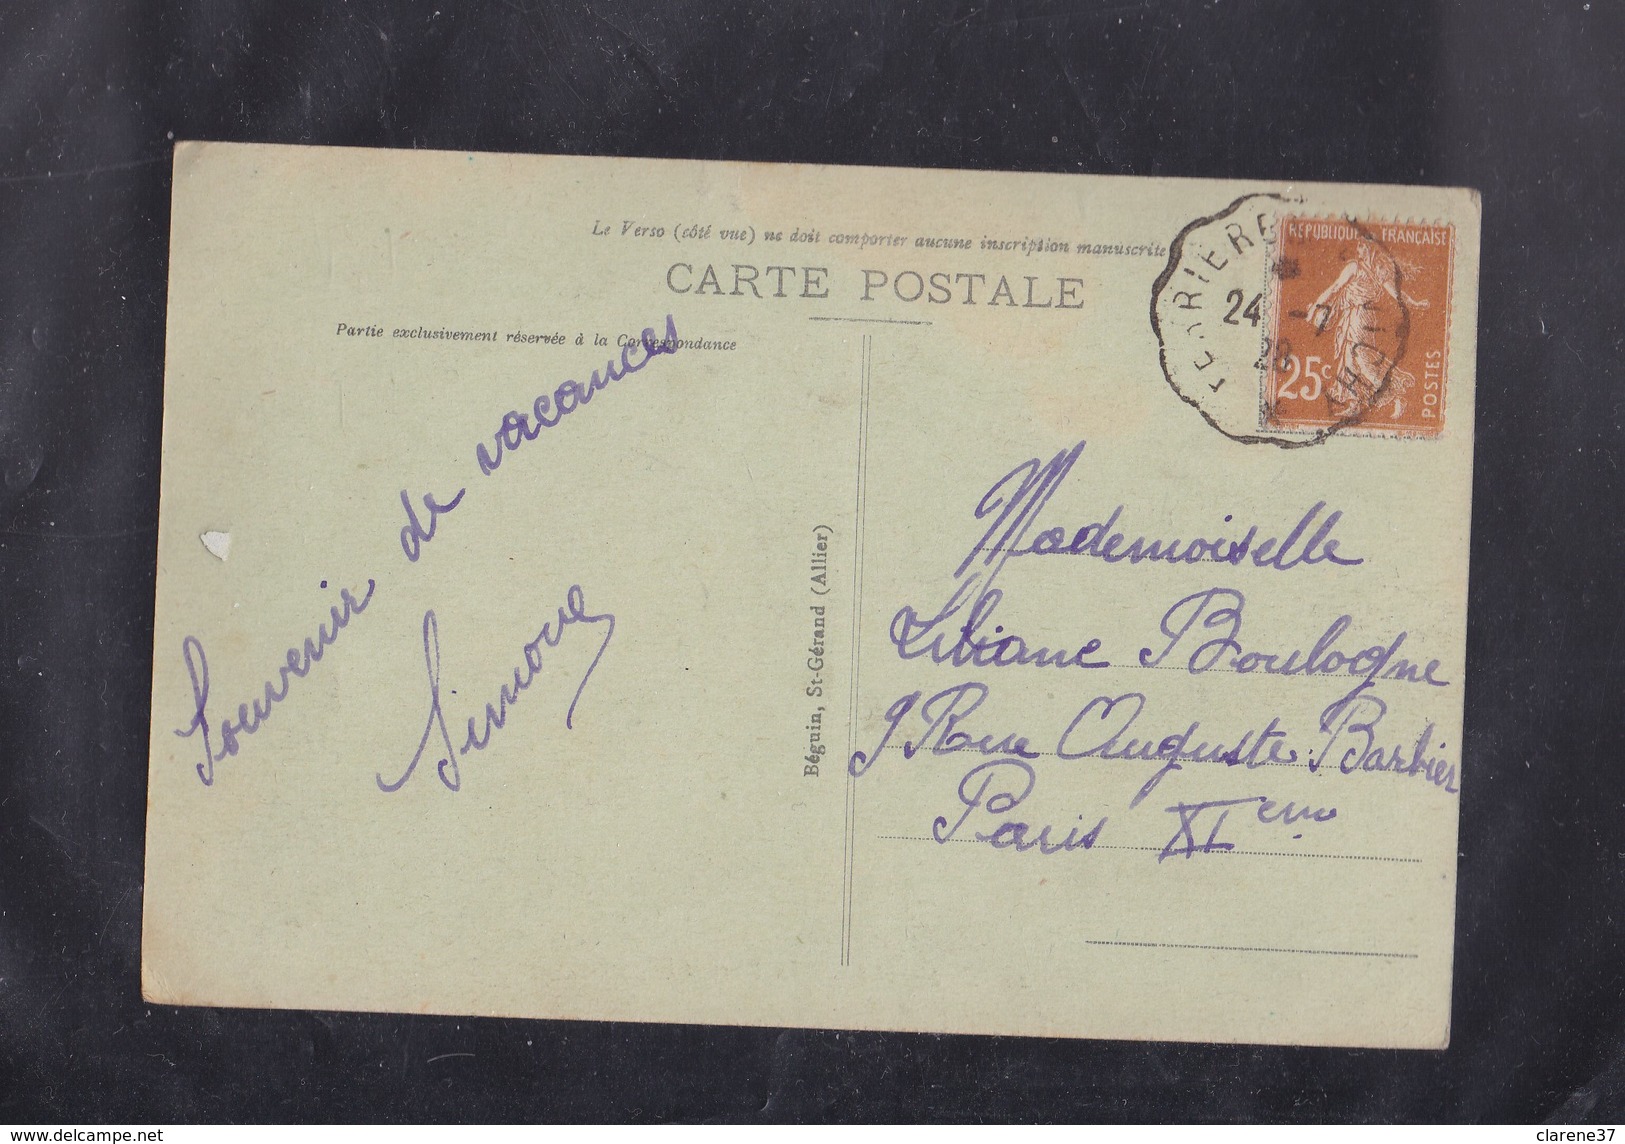 Le Verso (côté vue) ne doit comporter aucune inscription manuscrite
CARTE POSTALE
Partie exclusivement réservée à la Correspondance
Souvenir de vacances
Simone
Béguin, St-Gérand (Allier)
RÉPUBLIQUE FRANÇAISE
25c
POSTES
24 -7
28
VICHY
Mademoiselle
Liliane Boulogne
9 Rue Auguste Barbier
Paris XIème
clarene37